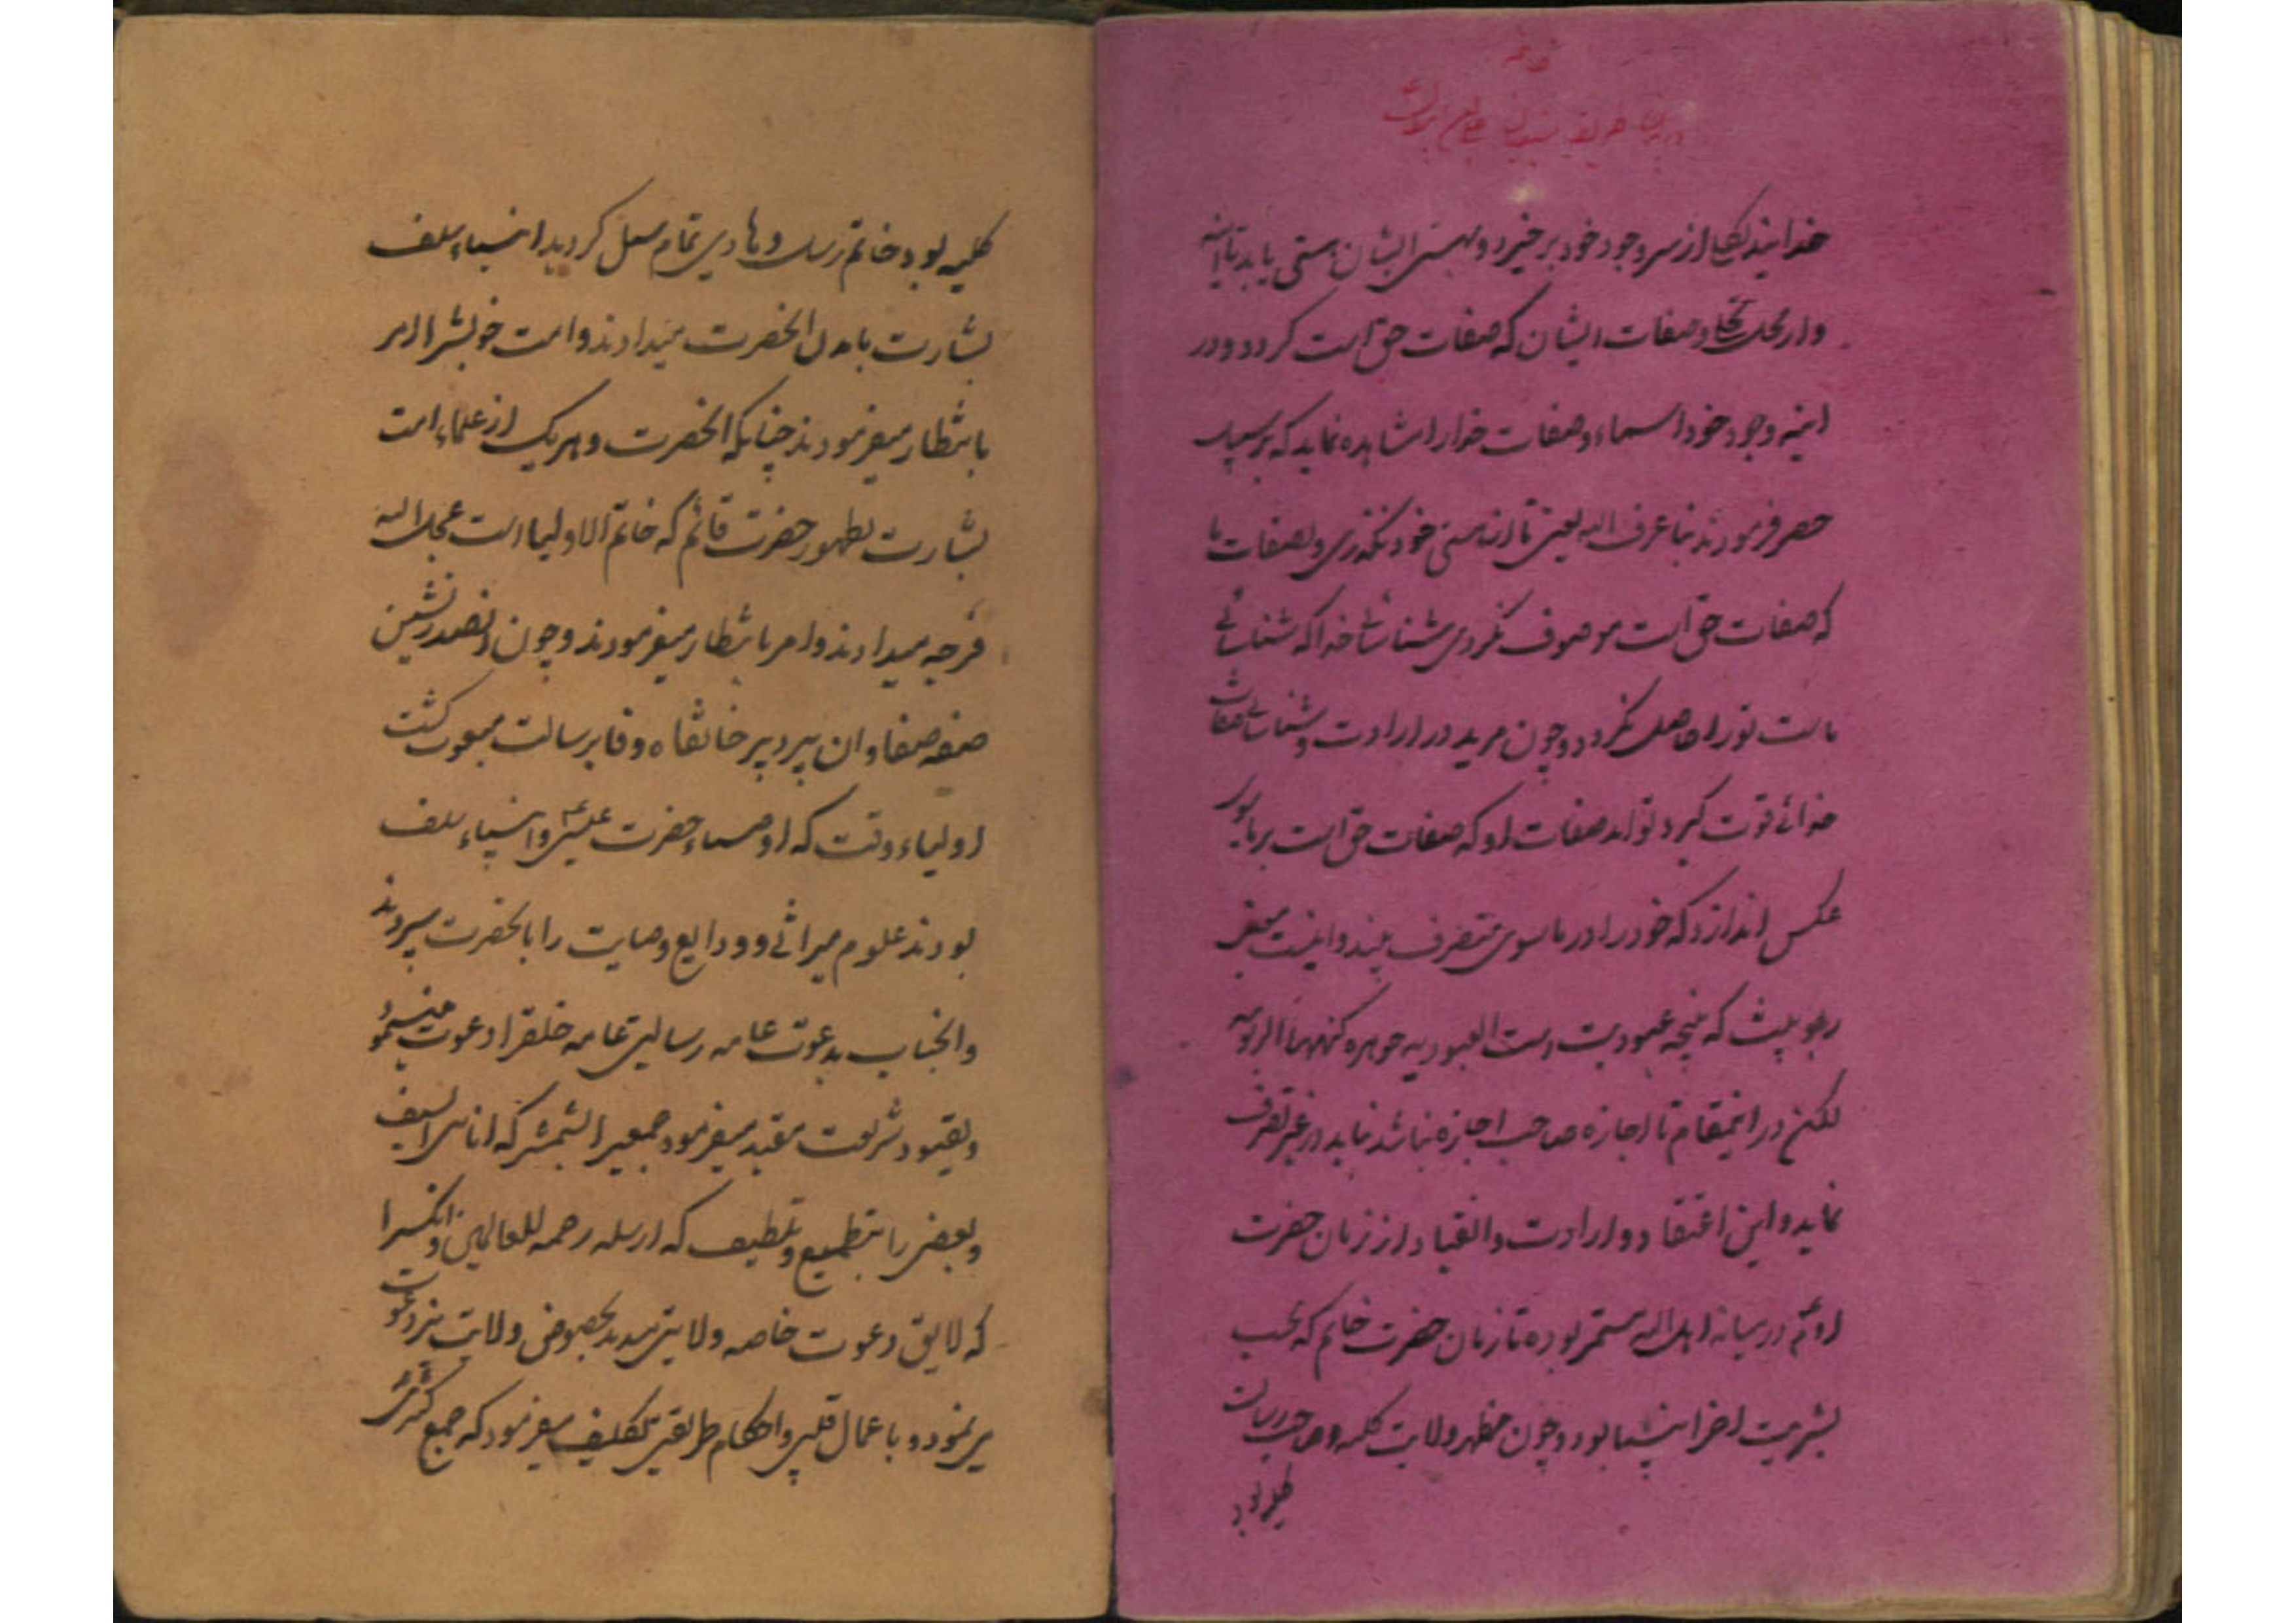 خدا بیند بلکه از سر وجود خود برخیزد و بهستی ایشان هستی یابد تا آینه
وار محل تجلی و صفات ایشان که صفات حق است گردد و در
آینه وجود خود اسماء و صفات خدا را مشاهده نماید که بر سبیل
حصر فرمودند بنا عرف الله یعنی تا از هستی خود نگذری و بصفات ما
که صفات حق است موصوف نگردی شناسائی خدا که شناسائی
ماست تو را حاصل نگردد و چون مرید در ارادت و شناسائی صفات
خدائی قوت گیرد تواند صفات او که صفات حق است بر مادون
عکس اندازد که خود را در ماسوی متصرف بیند و اینست معنی
ربوبیت که نتیجه عبودیت است العبودیه جوهره کنهها الربوبیه
لکن در اینمقام تا اجازه صاحب اجازه نباشد نباید در غیر تصرف
نماید و این اعتقاد و ارادت و انقیاد از زمان حضرت
آدم در میانه اهل الله مستمر بوده تا زمان حضرت خاتم که بحسب
بشریت آخر انبیا بود و چون مظهر ولایت کلیه و صاحب رسالت
کلیه بود
کلیه بود خاتم رسل و هادی تمام سبل گردید انبیاء سلف
بشارت بآمدن آنحضرت میدادند و امت خویش را امر
بانتظار میفرمودند چنانکه آنحضرت و هریک از علماء امت
بشارت بظهور حضرت قائم که خاتم الاولیا است عجل الله
فرجه میدادند و امر بانتظار میفرمودند و چون آنصدرنشین
صفه صفا و آن پیر دیر خانقاه وفا برسالت مبعوث گشت
اولیاء وقت که اوصیاء حضرت عیسی و انبیاء سلف
بودند علوم میراثی و ودایع وصایت را بآنحضرت سپردند
و آنجناب بدعوت عامه رسالتی عامه خلق را دعوت مینمود
و بقیود شریعت مقید میفرمود جمعی را بشمشیر که انا نبی السیف
و بعضی را بتطمیع و تلطیف که ارسله رحمه للعالمین و آنکسرا
که لایق دعوت خاصه ولایتی میدید بخصوص ولایت نیز دعوت
می نمود و باعمال قلبی و احکام طریقتی تکلیف میفرمود که جمیع